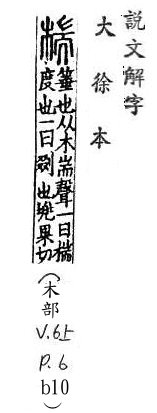 説文解字
大徐本
椯
箠也从木耑聲一曰椯
度也一曰剟也兜果切
(木部
V.6上
P.6
b10)